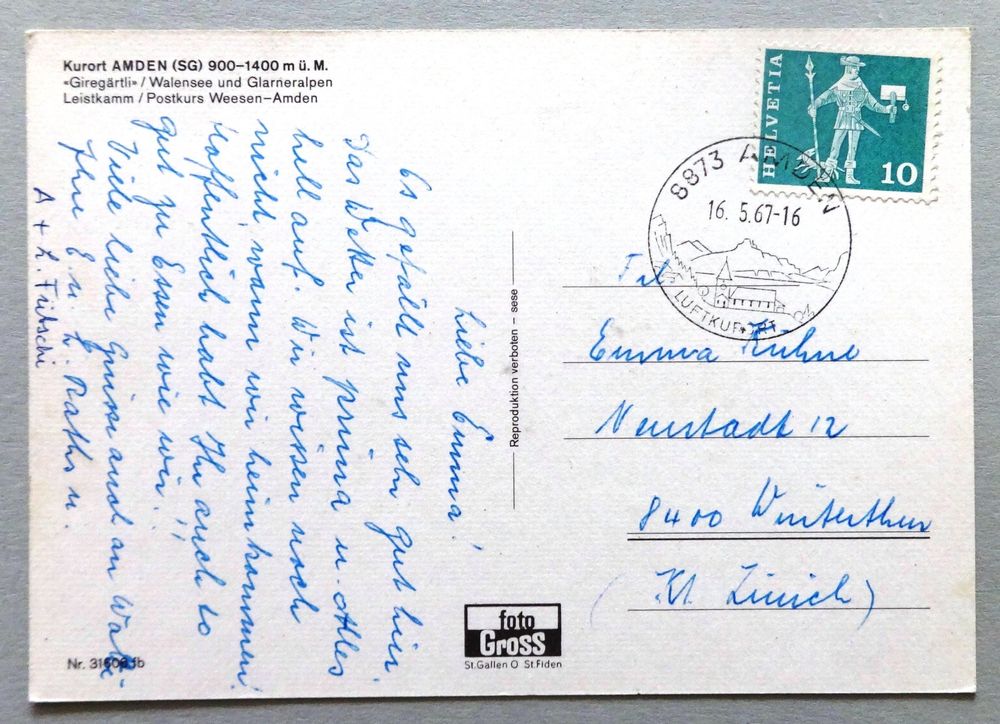 Kurort AMDEN (SG) 900–1400 m ü. M.
«Giregärtli» / Walensee und Glarneralpen
Leistkamm / Postkurs Weesen–Amden
HELVETIA
10
8873 AMDEN
16. 5.67-16
LUFTKURORT
Liebe Emma!
Es gefällt uns sehr gut hir.
Das Wetter ist prima u. Alles
hell auf. Wir wissen noch
nicht wann wir heimkommen!
Hoffentlich habt Ihr auch so
gut zu Essen wie wir!!
Viele liebe Grüsse auch an
Ihre E. u. H. u.
A + L.
Reproduktion verboten – sese
Frl.
Emma Kuhne
Neustadt 12
8400 Winterthur
(Kt. Zürich)
foto
Gross
St.Gallen O St.Fiden
Nr.